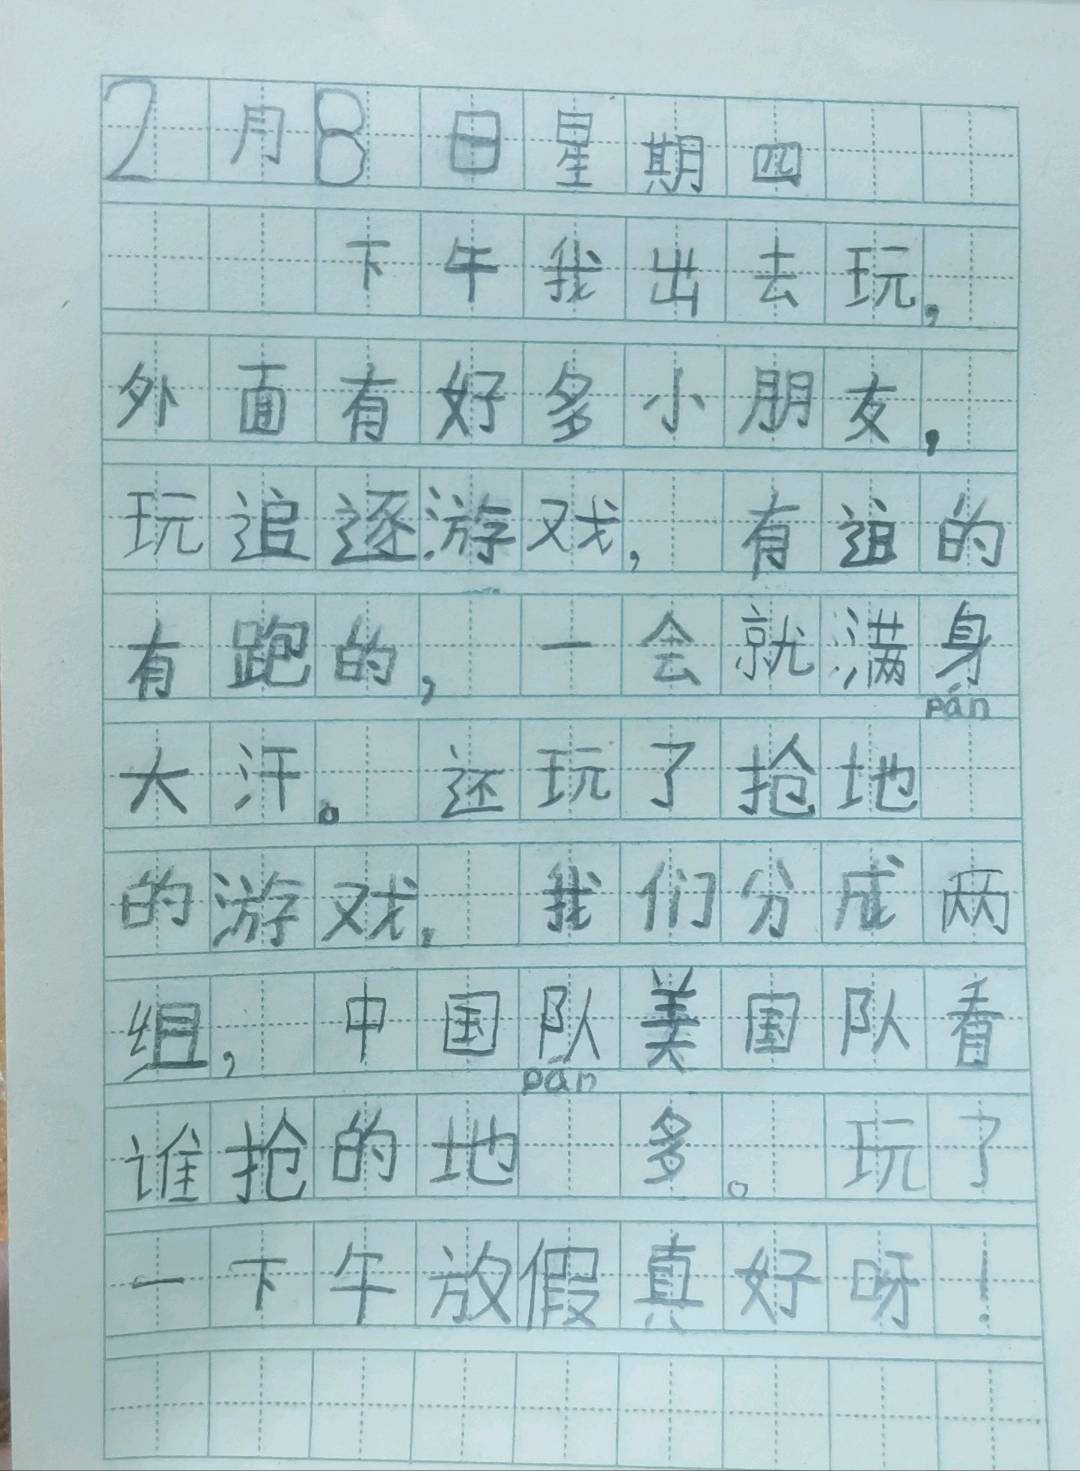 2月8日星期四
下午我出去玩,
外面有好多小朋友,
玩追逐游戏,有追的
有跑的,一会就满身
大汗。还玩了抢地pán
的游戏,我们分成两
组,中国队美国队看
谁抢的地pán多。玩了
一下午放假真好呀!